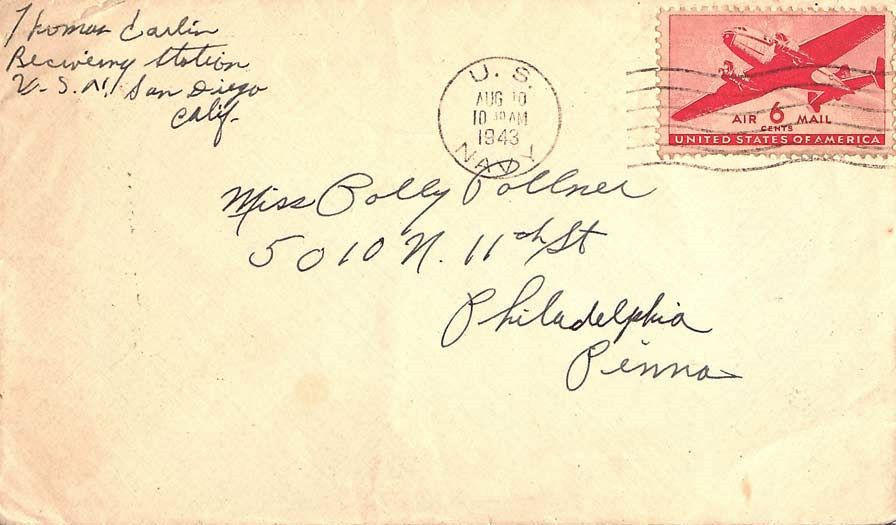 Thomas Carlin
Recivieng Station
U. S. N. San Diego
Calif.
U. S.
AUG 10
10 30 AM
1943
NAVY
AIR 6 MAIL
CENTS
UNITED STATES OF AMERICA
Miss Polly Pollner
5010 N. 11th St
Philadelphia
Penna